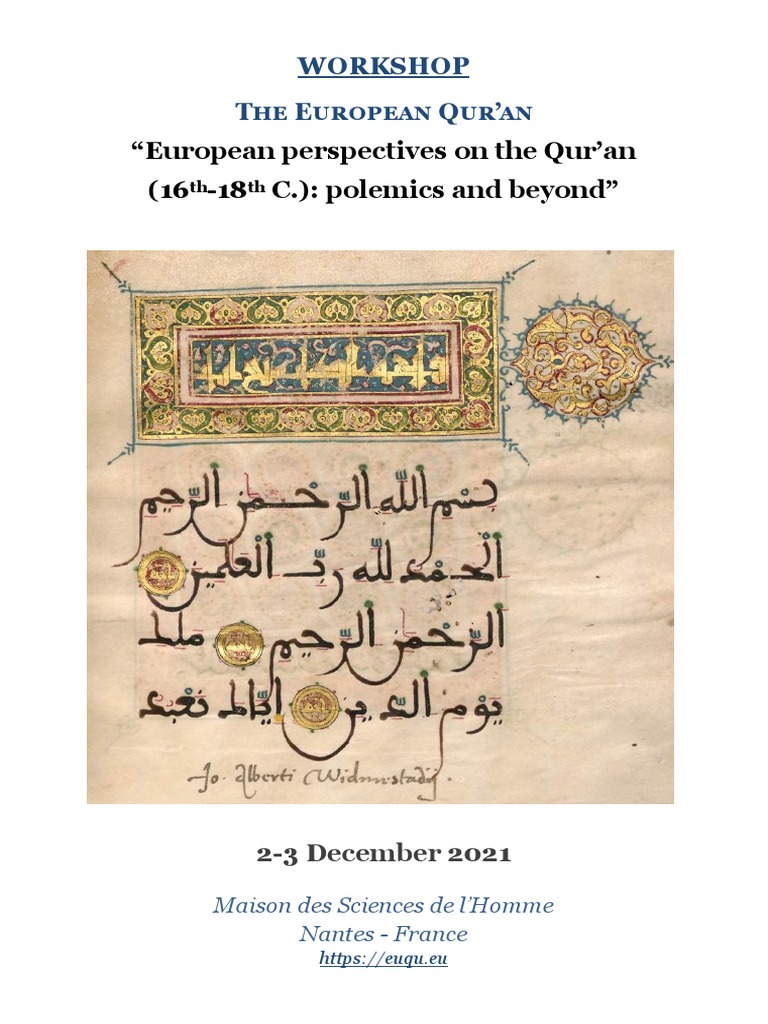 WORKSHOP
THE EUROPEAN QUR’AN
“European perspectives on the Qur’an
(16th-18th C.): polemics and beyond”
بسم الله الرّحمن الرّحيم
الْحمْد لله ربّ الْعلمين
الرّحمن الرّحيم ملك
يوْم الدّين إيّاك نعْبد
Jo. Alberti Widmestadij.
2-3 December 2021
Maison des Sciences de l’Homme
Nantes - France
https://euqu.eu